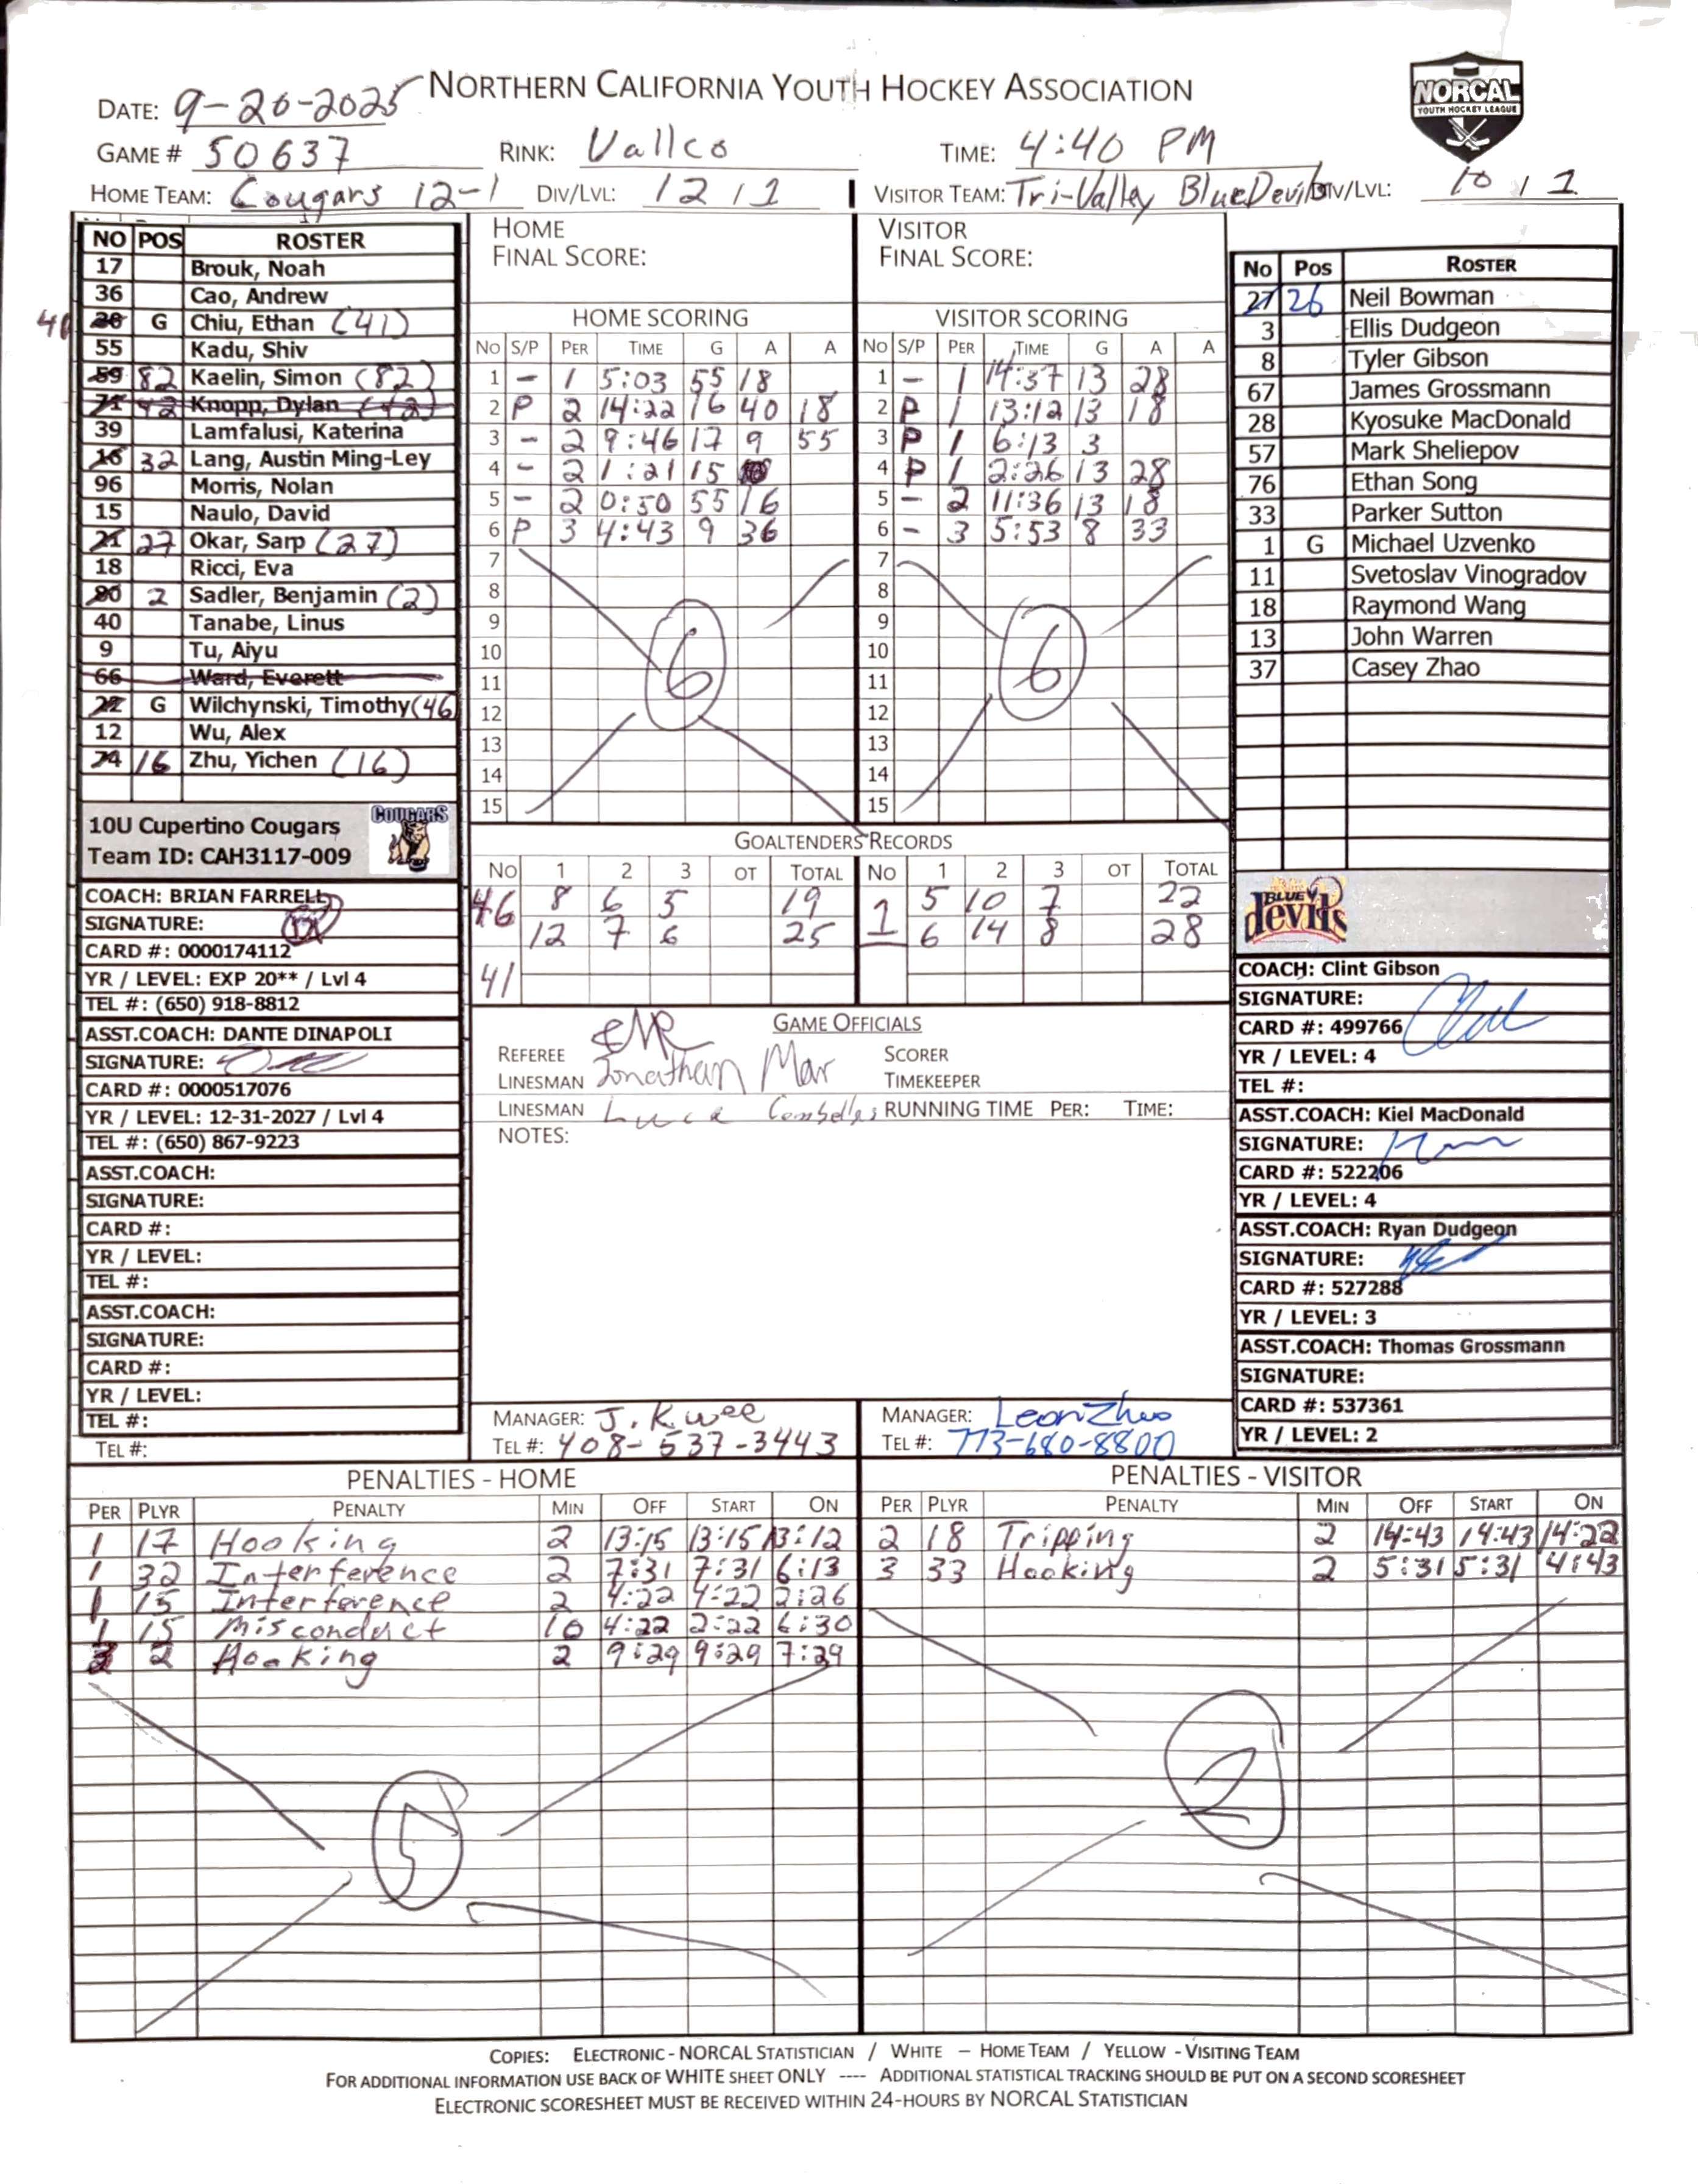 NORTHERN CALIFORNIA YOUTH HOCKEY ASSOCIATION
NORCAL
YOUTH HOCKEY LEAGUE
DATE: 9-20-2025
GAME # 50637 RINK: Vallco TIME: 4:40 PM
HOME TEAM: Cougars 12-1 DIV/LVL: 12 / 1 VISITOR TEAM: Tri-Valley BlueDevils DIV/LVL: 10 / 1
NO POS ROSTER
17 Brouk, Noah
36 Cao, Andrew
G Chiu, Ethan (41)
55 Kadu, Shiv
59 82 Kaelin, Simon (82)
71 42 Knopp, Dylan (42)
39 Lamfalusi, Katerina
16 32 Lang, Austin Ming-Ley
96 Morris, Nolan
15 Naulo, David
21 27 Okar, Sarp (27)
18 Ricci, Eva
80 2 Sadler, Benjamin (2)
40 Tanabe, Linus
9 Tu, Aiyu
66 Ward, Everett
22 G Wilchynski, Timothy (46
12 Wu, Alex
74 16 Zhu, Yichen (16)
10U Cupertino Cougars
Team ID: CAH3117-009
COUGARS
COACH: BRIAN FARRELL
SIGNATURE:
CARD #: 0000174112
YR / LEVEL: EXP 20** / Lvl 4
TEL #: (650) 918-8812
ASST.COACH: DANTE DINAPOLI
SIGNATURE:
CARD #: 0000517076
YR / LEVEL: 12-31-2027 / Lvl 4
TEL #: (650) 867-9223
ASST.COACH:
SIGNATURE:
CARD #:
YR / LEVEL:
TEL #:
ASST.COACH:
SIGNATURE:
CARD #:
YR / LEVEL:
TEL #:
TEL #:
HOME
FINAL SCORE:
HOME SCORING
NO S/P PER TIME G A A
1 - 1 5:03 55 18
2 P 2 14:22 16 40 18
3 - 2 9:46 17 9 55
4 - 2 1:21 15
5 - 2 0:50 55 16
6 P 3 4:43 9 36
7
8
9
10
11
12
13
14
15
6
VISITOR
FINAL SCORE:
VISITOR SCORING
NO S/P PER TIME G A A
1 - 1 14:37 13 28
2 P 1 13:12 13 18
3 P 1 6:13 3
4 P 1 2:26 13 28
5 - 2 11:36 13 18
6 - 3 5:53 8 33
7
8
9
10
11
12
13
14
15
6
GOALTENDERS RECORDS
NO 1 2 3 OT TOTAL NO 1 2 3 OT TOTAL
46 8 6 5 19 1 5 10 7 22
12 7 6 25 6 14 8 28
41
GAME OFFICIALS
REFEREE SCORER
LINESMAN Jonathan Mar TIMEKEEPER
LINESMAN Luca RUNNING TIME PER: TIME:
NOTES:
MANAGER: J. Kwee
TEL #: 408-537-3443
MANAGER: Leon Zhao
TEL #: 773-680-8800
No Pos ROSTER
27 26 Neil Bowman
3 Ellis Dudgeon
8 Tyler Gibson
67 James Grossmann
28 Kyosuke MacDonald
57 Mark Sheliepov
76 Ethan Song
33 Parker Sutton
1 G Michael Uzvenko
11 Svetoslav Vinogradov
18 Raymond Wang
13 John Warren
37 Casey Zhao
BLUE
devils
COACH: Clint Gibson
SIGNATURE:
CARD #: 499766
YR / LEVEL: 4
TEL #:
ASST.COACH: Kiel MacDonald
SIGNATURE:
CARD #: 522206
YR / LEVEL: 4
ASST.COACH: Ryan Dudgeon
SIGNATURE:
CARD #: 527288
YR / LEVEL: 3
ASST.COACH: Thomas Grossmann
SIGNATURE:
CARD #: 537361
YR / LEVEL: 2
PENALTIES - HOME
PER PLYR PENALTY MIN OFF START ON
1 17 Hooking 2 13:15 13:15 13:12
1 32 Interference 2 7:31 7:31 6:13
1 15 Interference 2 4:22 4:22 2:26
1 15 Misconduct 10 4:22 2:22 6:30
2 Hooking 2 9:29 9:29 7:29
5
PENALTIES - VISITOR
PER PLYR PENALTY MIN OFF START ON
2 18 Tripping 2 14:43 14:43 14:22
3 33 Hooking 2 5:31 5:31 4:43
2
COPIES: ELECTRONIC - NORCAL STATISTICIAN / WHITE – HOME TEAM / YELLOW - VISITING TEAM
FOR ADDITIONAL INFORMATION USE BACK OF WHITE SHEET ONLY ---- ADDITIONAL STATISTICAL TRACKING SHOULD BE PUT ON A SECOND SCORESHEET
ELECTRONIC SCORESHEET MUST BE RECEIVED WITHIN 24-HOURS BY NORCAL STATISTICIAN